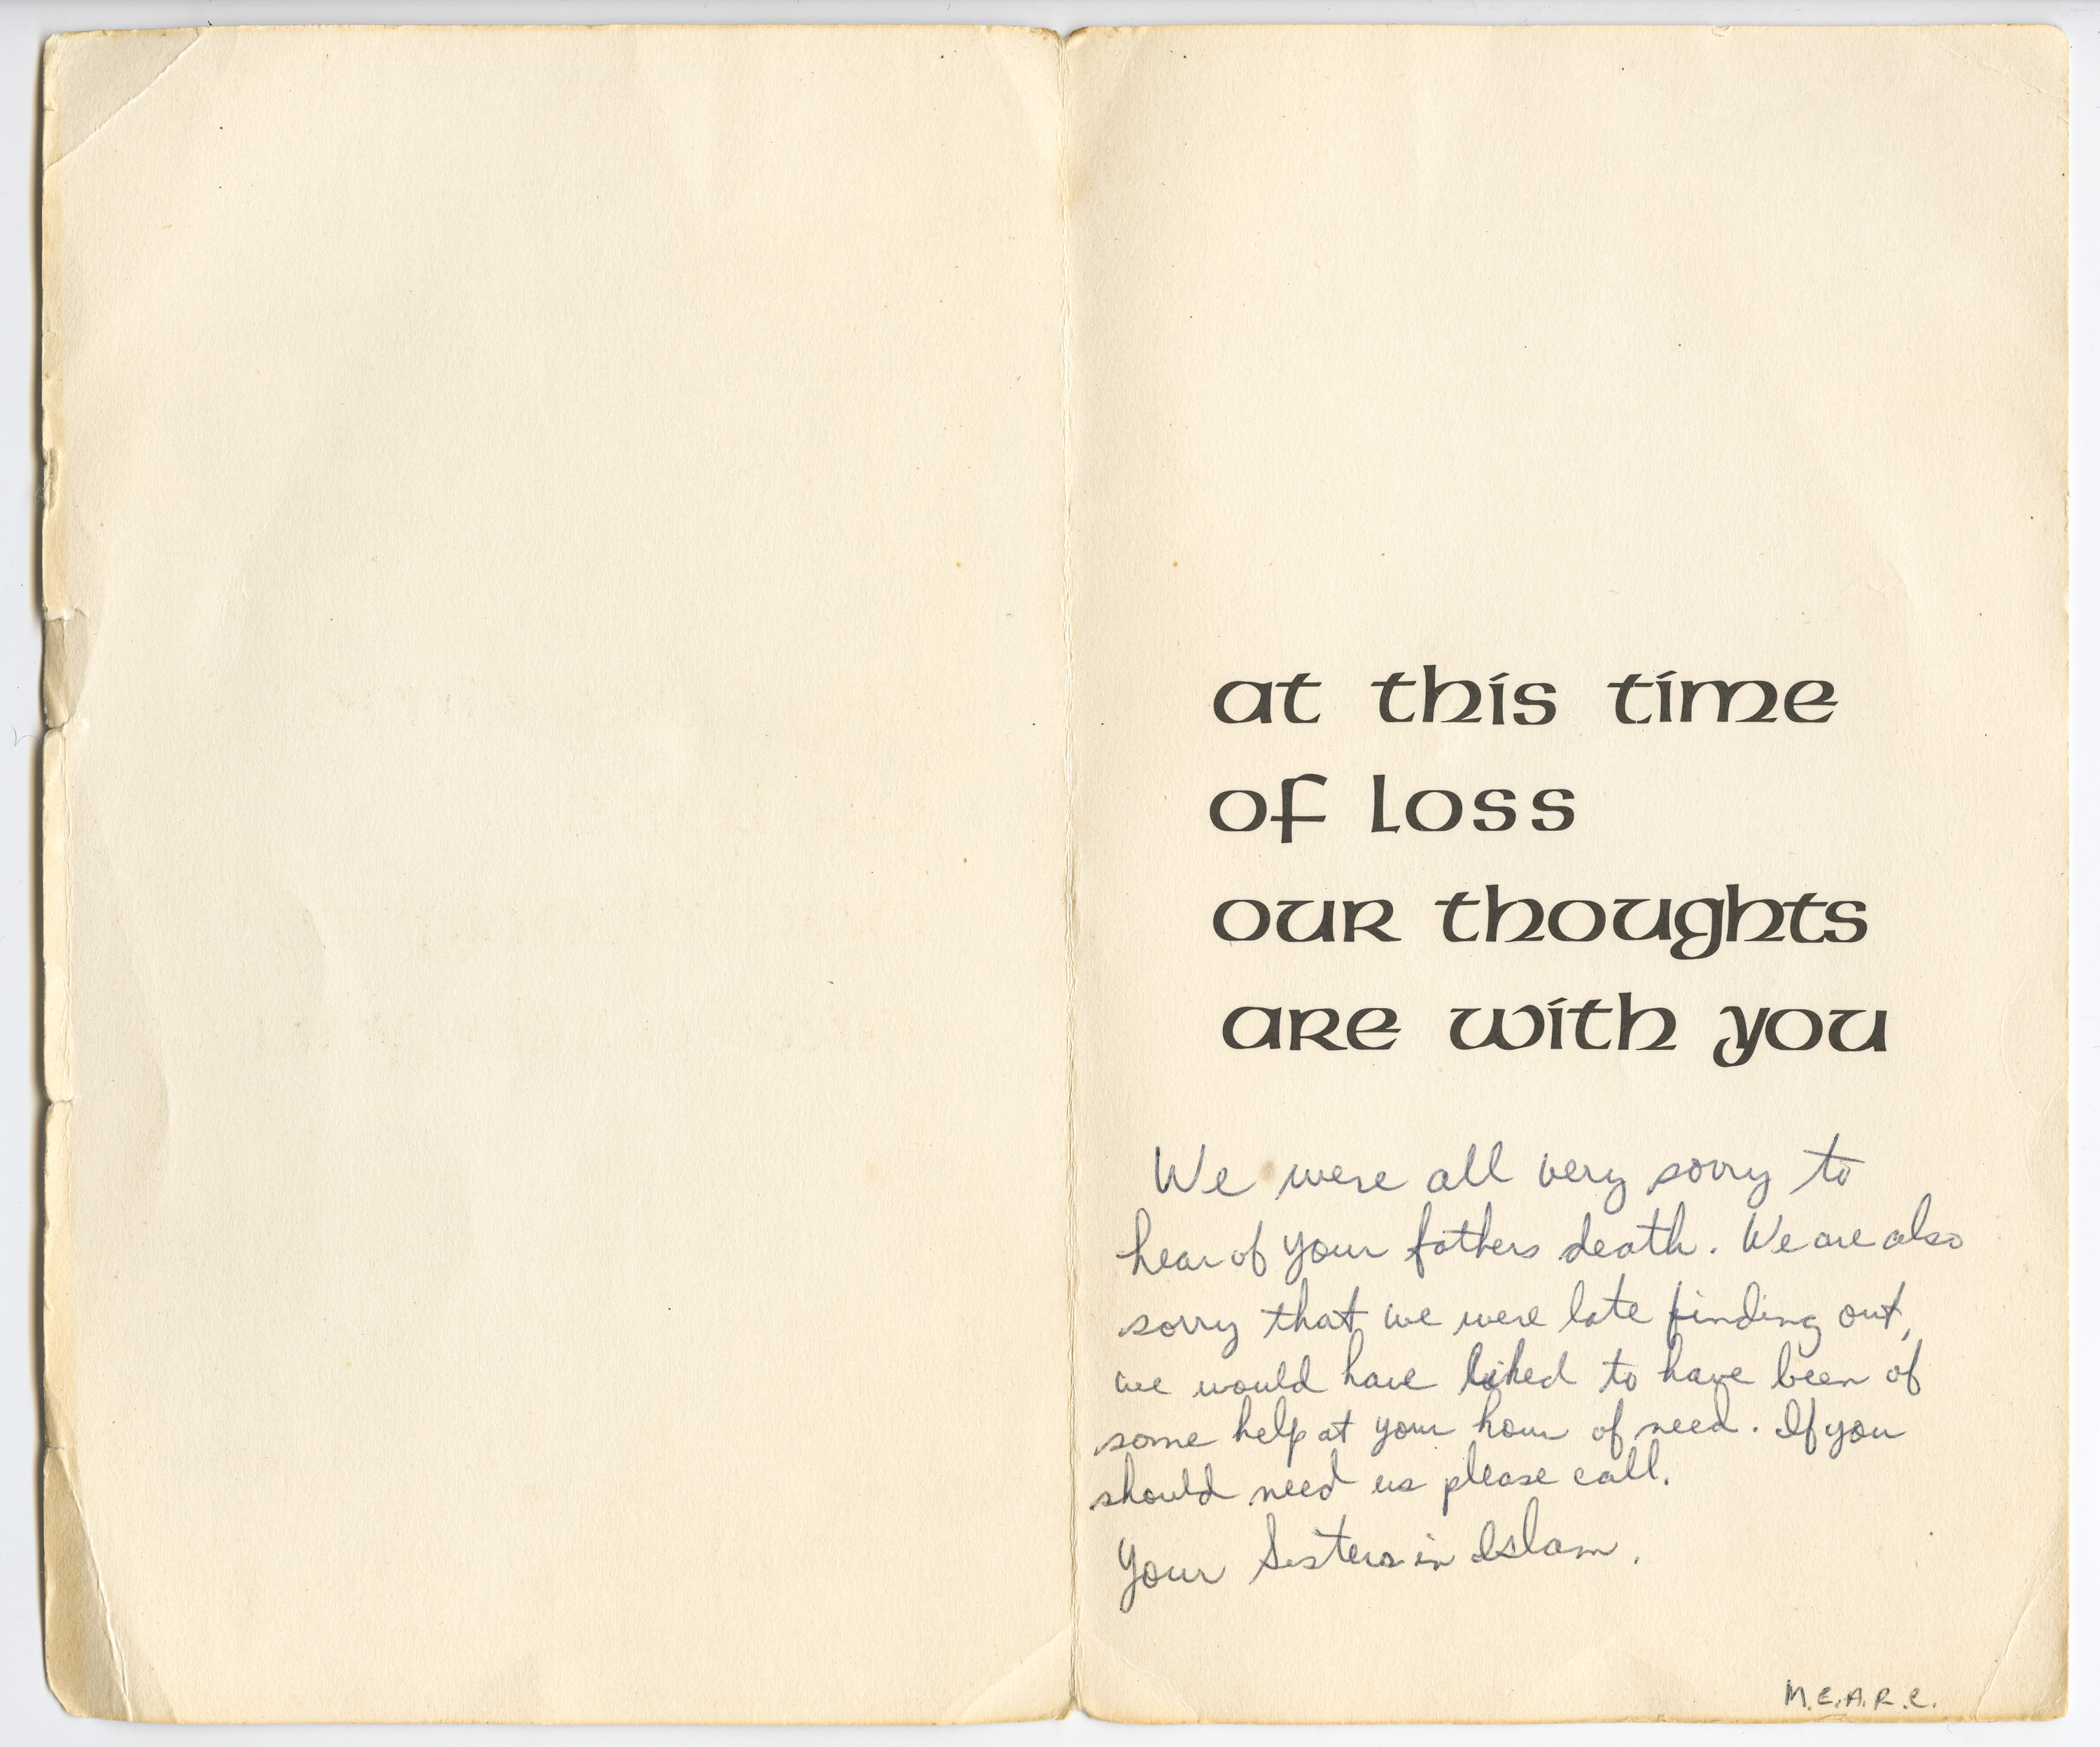 at this time
of loss
our thoughts
are with you
We were all very sorry to
hear of your fathers death. We are also
sorry that we were late finding out,
we would have liked to have been of
some help at your hour of need. If you
should need us please call.
Your Sisters in Islam.
M.E.A.R.C.